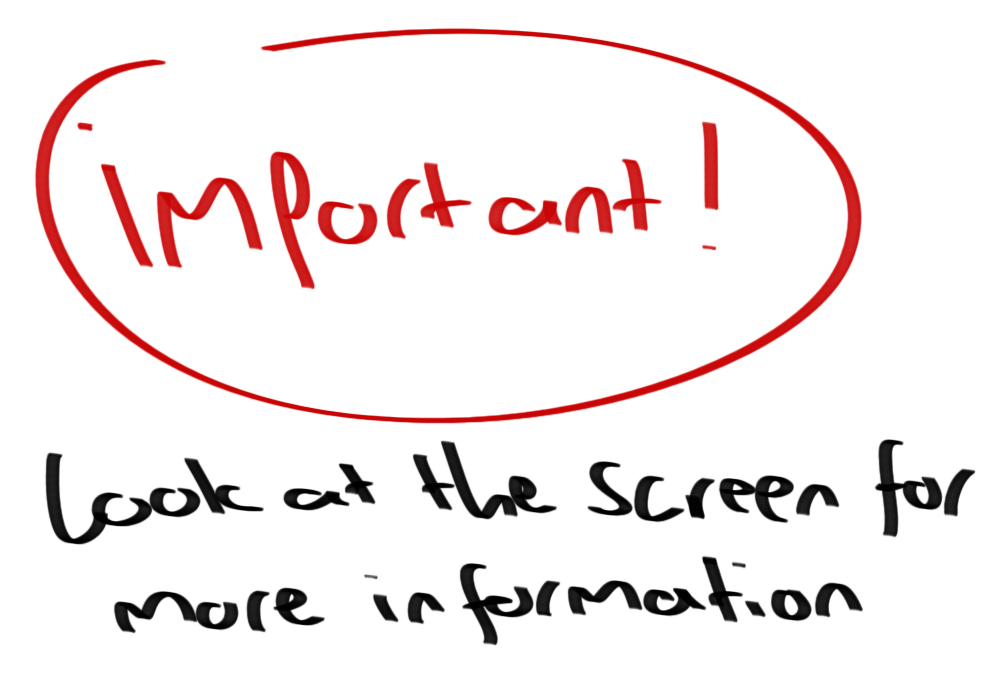 important!
Look at the screen for
more information